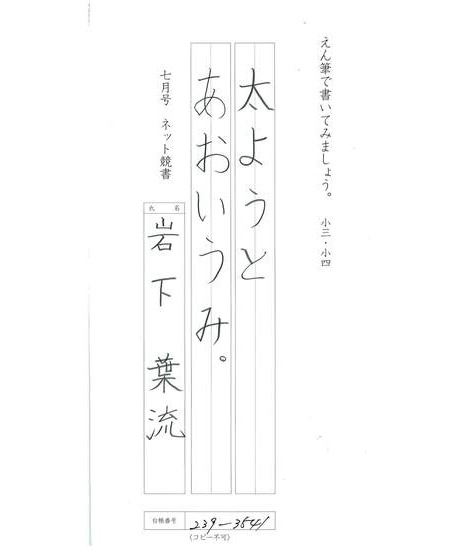 えん筆で書いてみましょう。 小三・小四
太ようと
あおいうみ。
七月号 ネット競書
氏名
岩下 葉流
台帳番号
239-3541
(コピー不可)